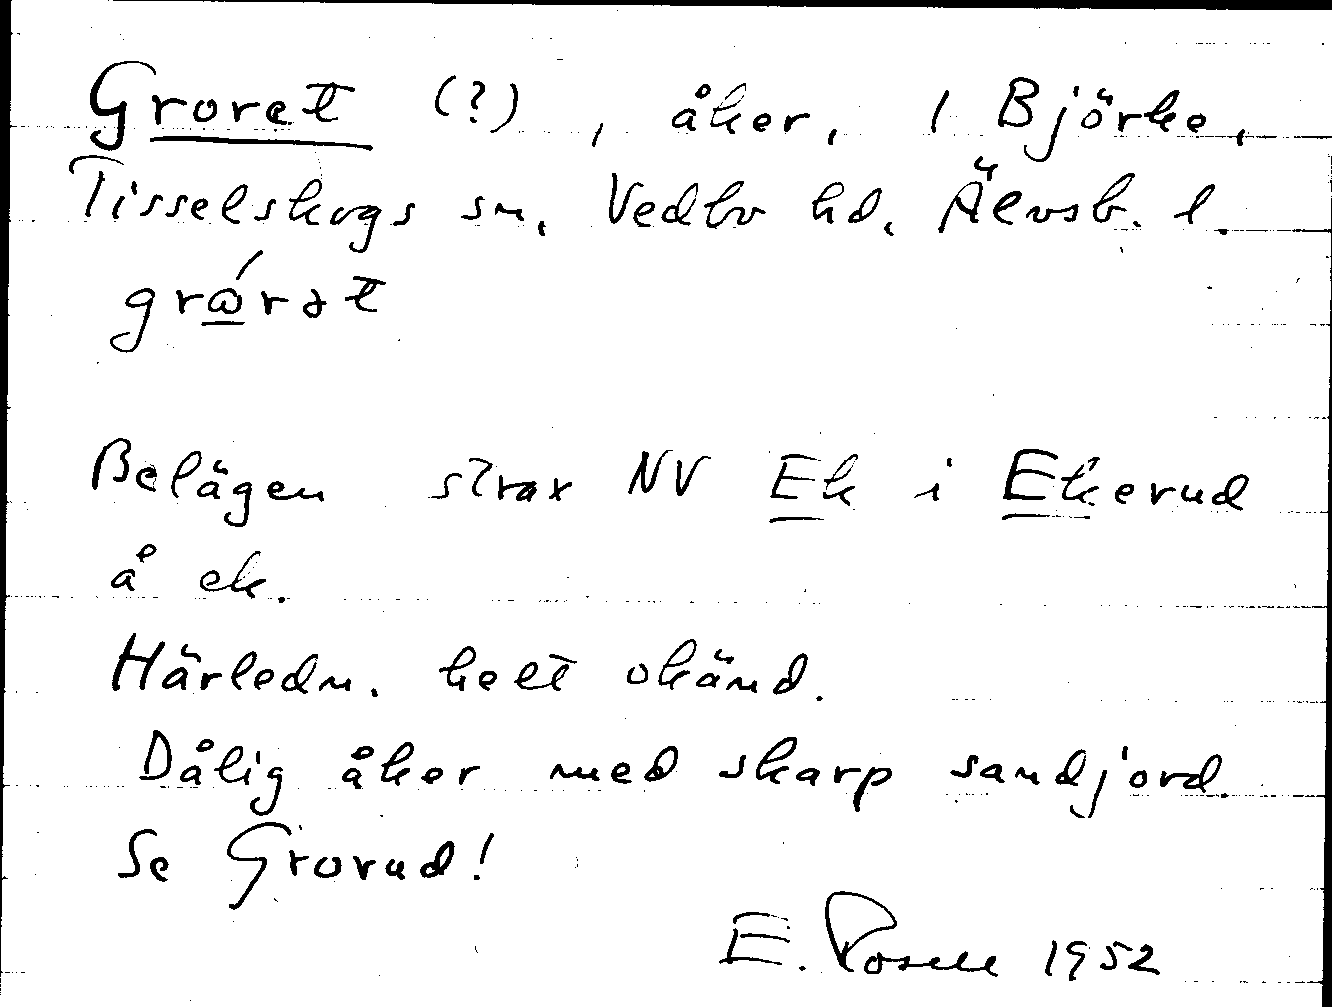 Groret (?), åker, 1 Björke,
Tisselskogs sn, Vedbo hd, Älvsb. l.
Belägen strax NV Ek i Ekerud
å ek.
Härledn. helt okänd.
Dålig åker med skarp sandjord.
Se Grorud!
E. Rosell 1952